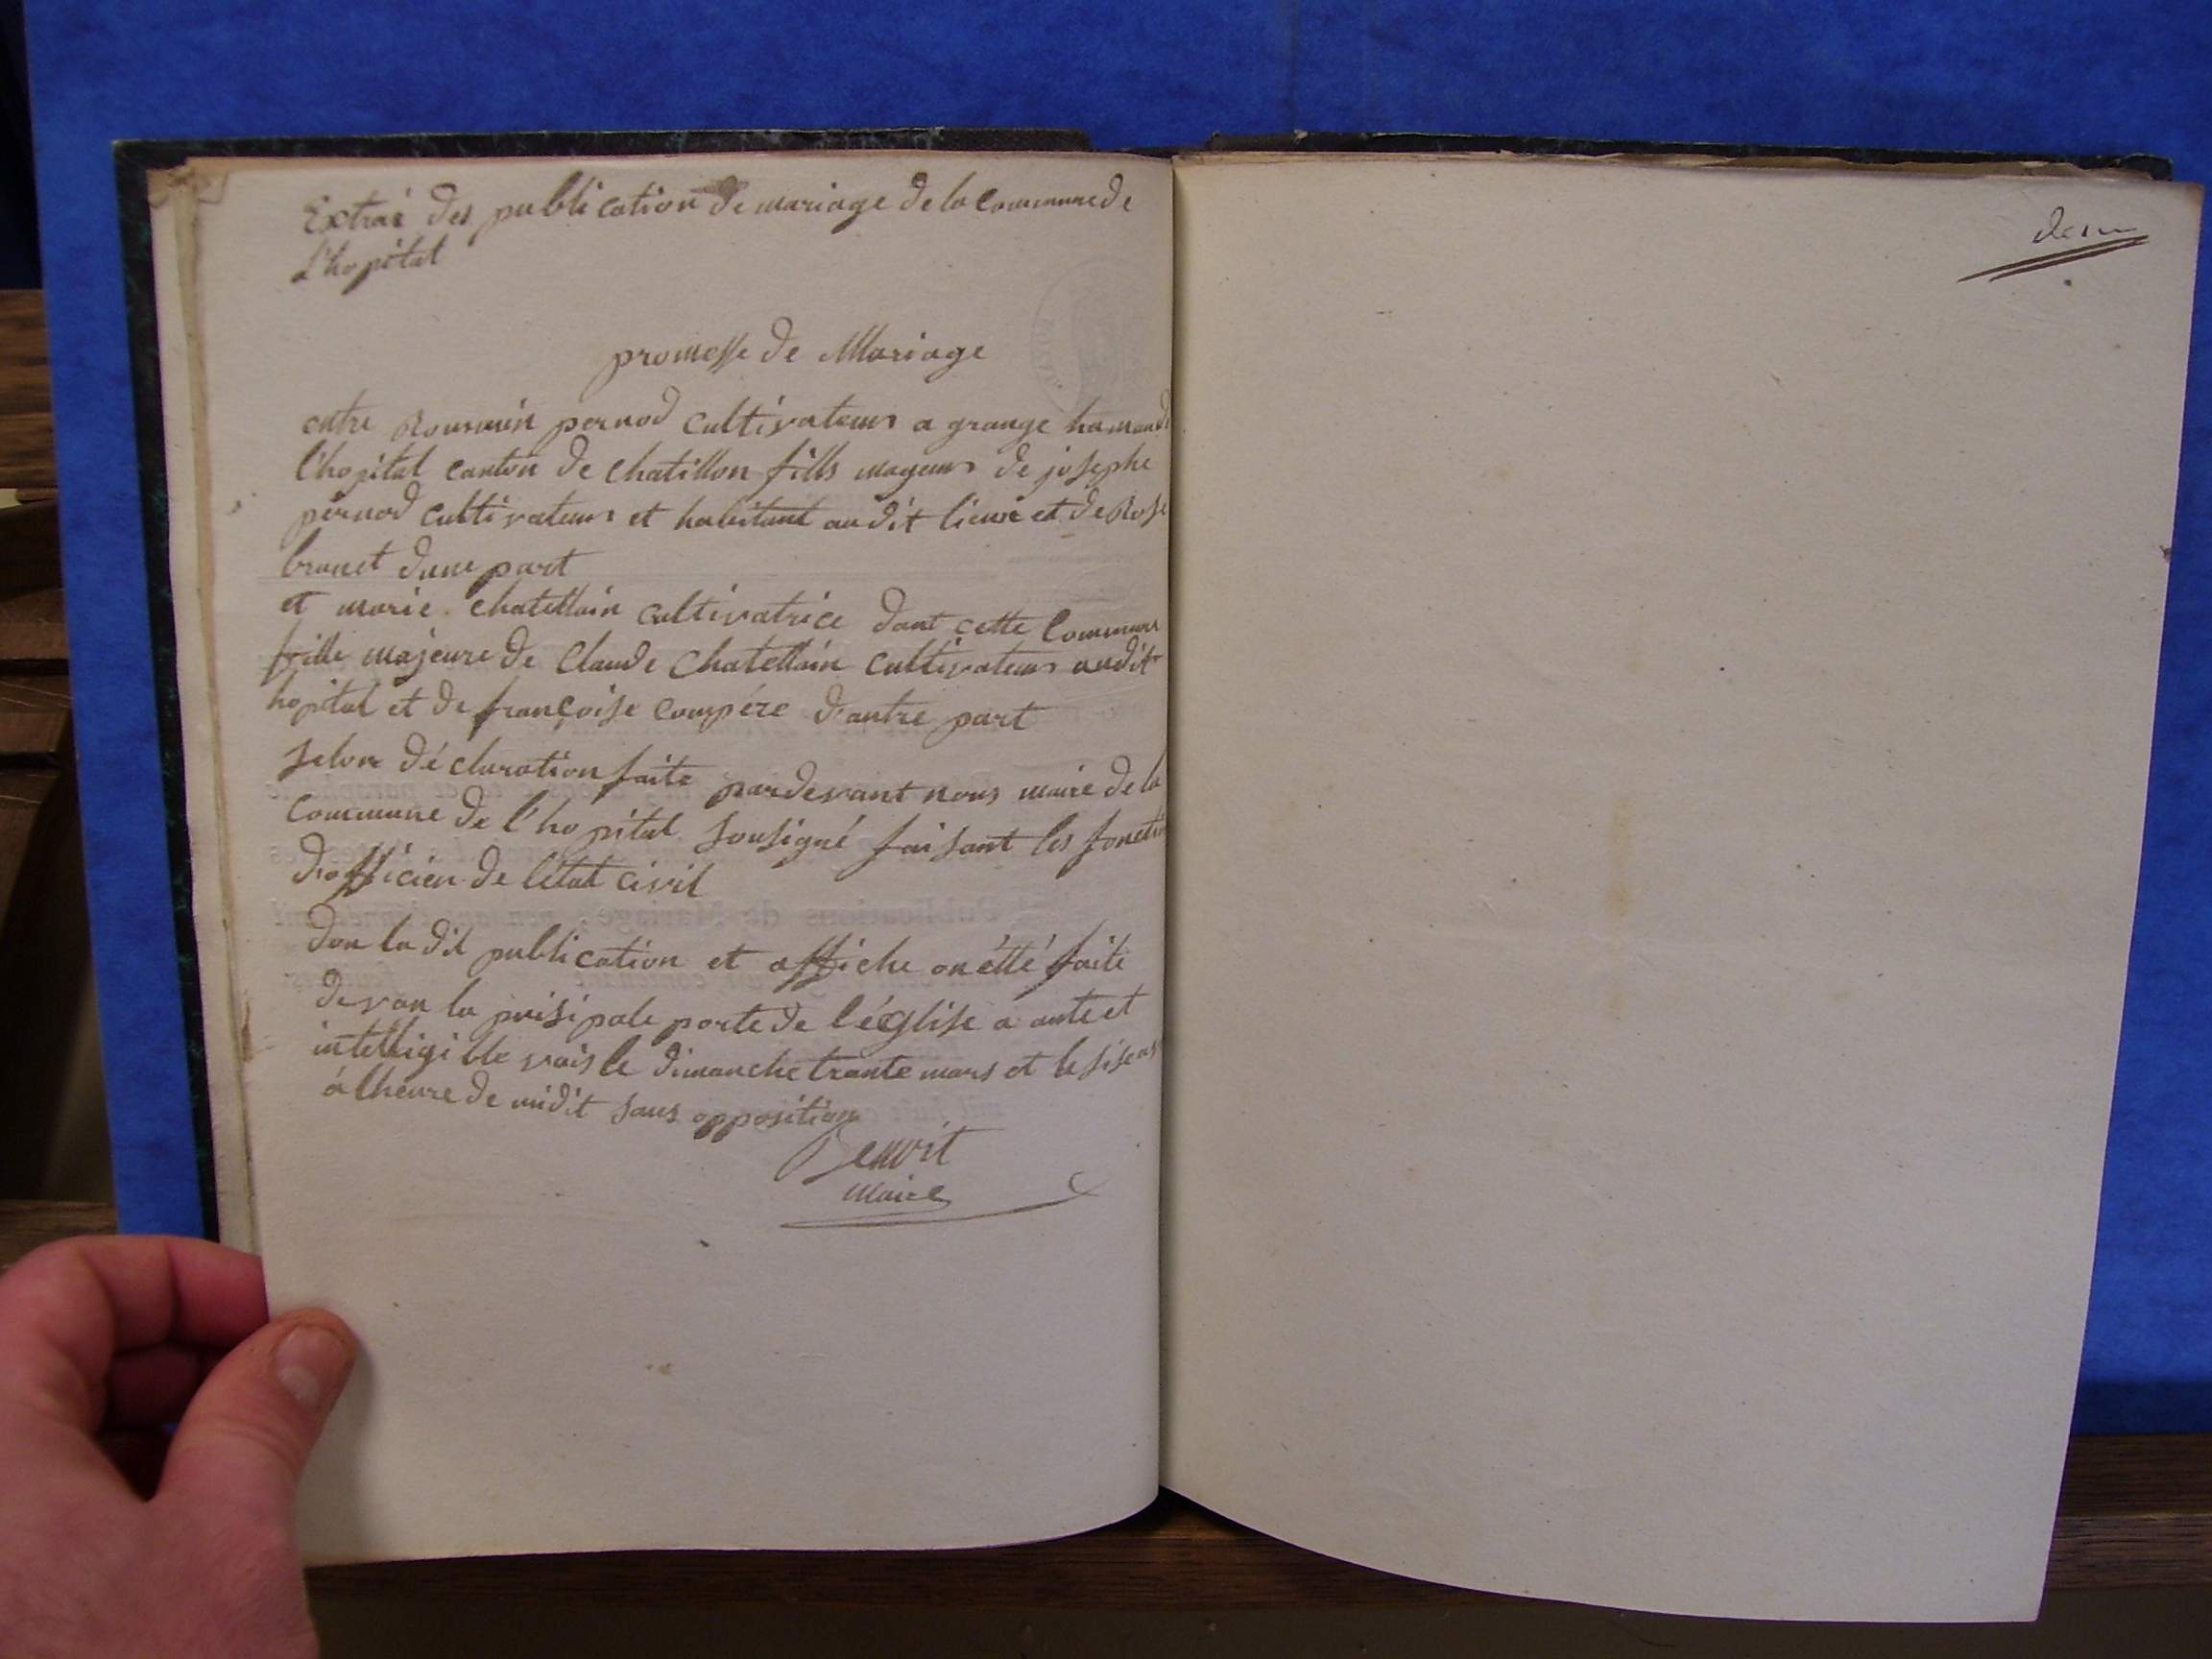 Extrai des publication de mariage de la commune de
L'hopital
promesse de Mariage
entre Roumain pernod cultivateur a grange
l'hopital canton de chatillon fills mageur de josephe
pernod cultivateur et habitant audit lieux et de Rose
brunet dune part
et marie chatellain cultivatrice dant cette commune
fille majeure de Claude Chatellain cultivateur audit
hopital et de françoise compére d'autre part
selon déclaration faite pardevant nous maire de la
commune de l'hopital sousigné faisant les
d'officier de l'état civil
don la dit publication et affiche on étté faite
devan la prisipale porte de l'église a aute et
intelligible vois le dimanche trante mars et le
á lheure de midit sans opposition
Benoit
maire